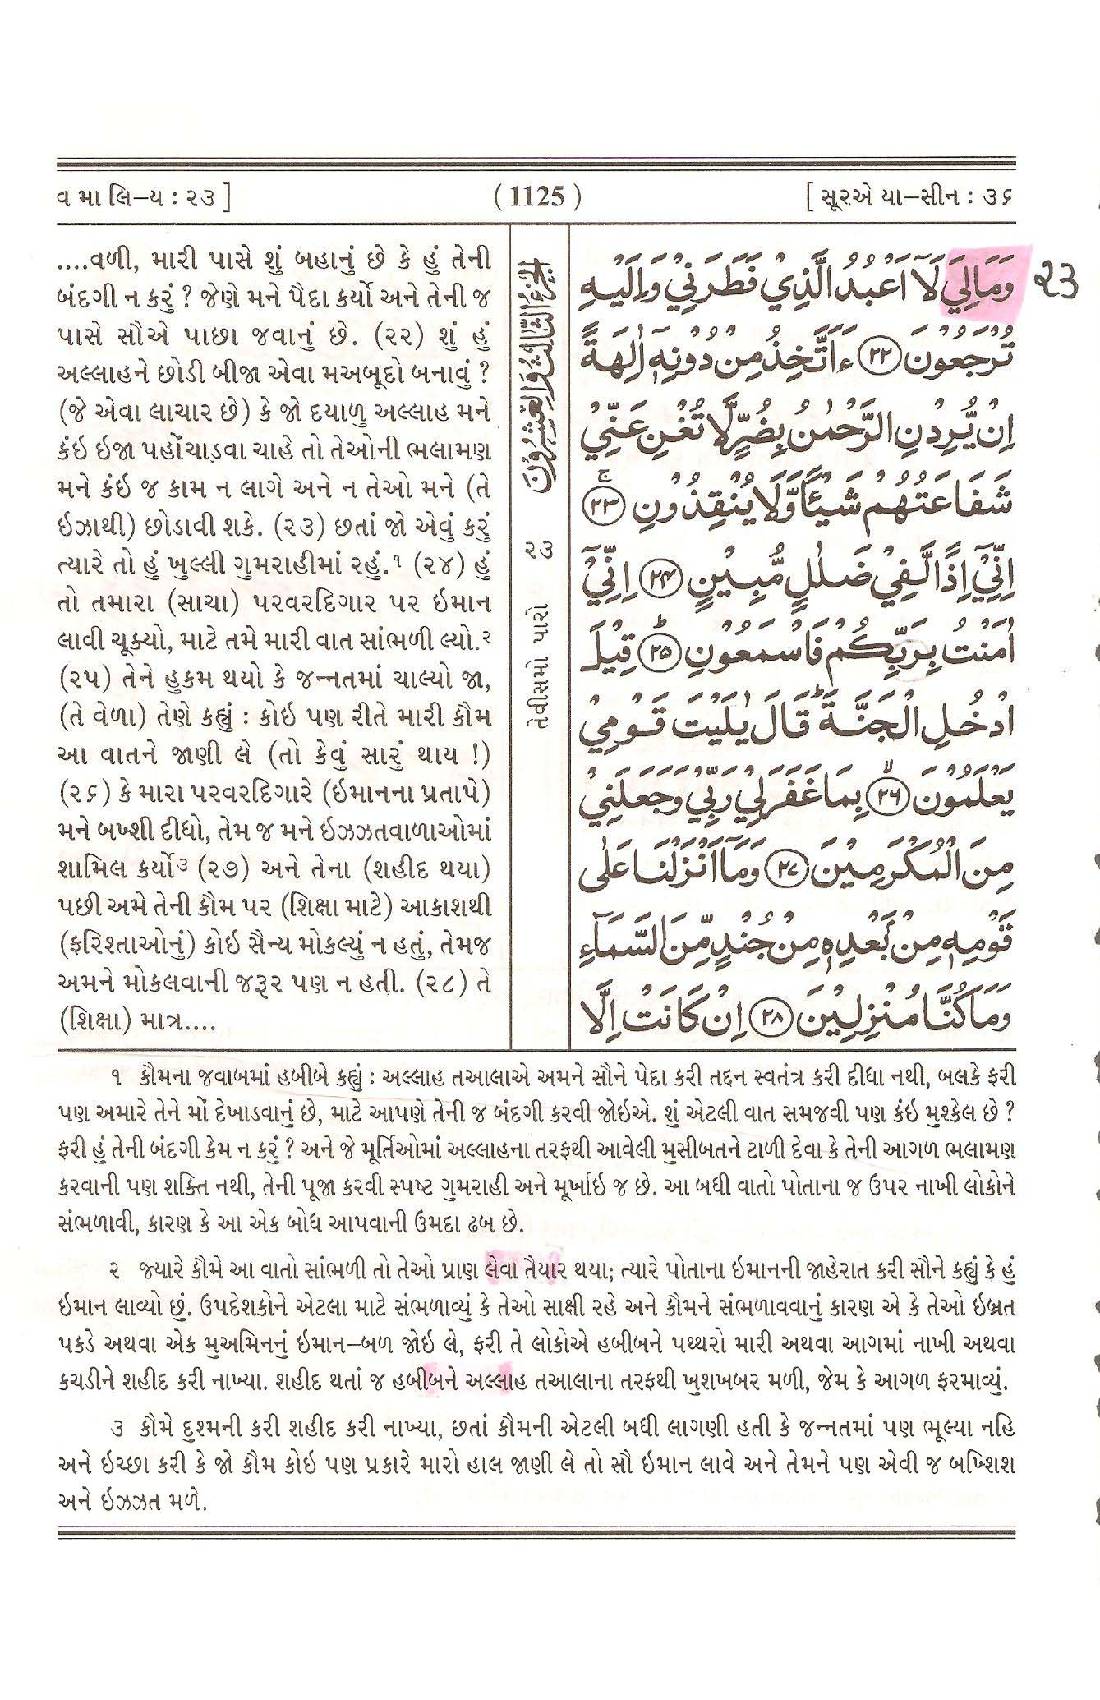 વ મા લિ–ય : ૨૩ ]
( 1125 )
[ સૂરએ યા–સીન : ૩૬
....વળી, મારી પાસે શું બહાનું છે કે હું તેની
બંદગી ન કરું ? જેણે મને પૈદા કર્યો અને તેની જ
પાસે સૌએ પાછા જવાનું છે. (૨૨) શું હું
અલ્લાહને છોડી બીજા એવા મઅબૂદો બનાવું ?
(જે એવા લાચાર છે) કે જો દયાળુ અલ્લાહ મને
કંઇ ઇજા પહોંચાડવા ચાહે તો તેઓની ભલામણ
મને કંઇ જ કામ ન લાગે અને ન તેઓ મને (તે
ઇઝાથી) છોડાવી શકે. (૨૩) છતાં જો એવું કરું
ત્યારે તો હું ખુલ્લી ગુમરાહીમાં રહું.૧ (૨૪) હું
તો તમારા (સાચા) પરવરદિગાર પર ઇમાન
લાવી ચૂક્યો, માટે તમે મારી વાત સાંભળી લ્યો.૨
(૨૫) તેને હુકમ થયો કે જન્નતમાં ચાલ્યો જા,
(તે વેળા) તેણે કહ્યું : કોઇ પણ રીતે મારી કૌમ
આ વાતને જાણી લે (તો કેવું સારું થાય !)
(૨૬) કે મારા પરવરદિગારે (ઇમાનના પ્રતાપે)
મને બખ્શી દીધો, તેમ જ મને ઇઝઝતવાળાઓમાં
શામિલ કર્યો૩ (૨૭) અને તેના (શહીદ થયા)
પછી અમે તેની કૌમ પર (શિક્ષા માટે) આકાશથી
(ફરિશ્તાઓનું) કોઇ સૈન્ય મોકલ્યું ન હતું, તેમજ
અમને મોકલવાની જરૂર પણ ન હતી. (૨૮) તે
(શિક્ષા) માત્ર....
الجزء الثالث والعشرون
૨૩
તેવીસમો પારો
وَمَا لِيَ لَآ اَعْبُدُ الَّذِيْ فَطَرَنِيْ وَاِلَيْهِ
૨૩
تُرْجَعُوْنَ ﴿۲۲﴾ ءَاَتَّخِذُ مِنْ دُوْنِهٖٓ اٰلِهَةً
اِنْ يُّرِدْنِ الرَّحْمٰنُ بِضُرٍّ لَّا تُغْنِ عَنِّيْ
شَفَاعَتُهُمْ شَيْـًٔا وَّلَا يُنْقِذُوْنِ ﴿۲۳﴾ۚ
اِنِّيْٓ اِذًا لَّفِيْ ضَلٰلٍ مُّبِيْنٍ ﴿۲۴﴾ اِنِّيْٓ
اٰمَنْتُ بِرَبِّكُمْ فَاسْمَعُوْنِ ﴿۲۵﴾ؕ قِيْلَ
ادْخُلِ الْجَنَّةَ ؕ قَالَ يٰلَيْتَ قَوْمِيْ
يَعْلَمُوْنَ ﴿۲۶﴾ۙ بِمَا غَفَرَ لِيْ رَبِّيْ وَجَعَلَنِيْ
مِنَ الْمُكْرَمِيْنَ ﴿۲۷﴾ وَمَآ اَنْزَلْنَا عَلٰى
قَوْمِهٖ مِنْۢ بَعْدِهٖ مِنْ جُنْدٍ مِّنَ السَّمَآءِ
وَمَا كُنَّا مُنْزِلِيْنَ ﴿۲۸﴾ اِنْ كَانَتْ اِلَّا
૧ કૌમના જવાબમાં હબીબે કહ્યું : અલ્લાહ તઆલાએ અમને સૌને પેદા કરી તદ્દન સ્વતંત્ર કરી દીધા નથી, બલકે ફરી
પણ અમારે તેને મોં દેખાડવાનું છે, માટે આપણે તેની જ બંદગી કરવી જોઇએ. શું એટલી વાત સમજવી પણ કંઇ મુશ્કેલ છે ?
ફરી હું તેની બંદગી કેમ ન કરું ? અને જે મૂર્તિઓમાં અલ્લાહના તરફથી આવેલી મુસીબતને ટાળી દેવા કે તેની આગળ ભલામણ
કરવાની પણ શક્તિ નથી, તેની પૂજા કરવી સ્પષ્ટ ગુમરાહી અને મૂર્ખાઇ જ છે. આ બધી વાતો પોતાના જ ઉપર નાખી લોકોને
સંભળાવી, કારણ કે આ એક બોધ આપવાની ઉમદા ઢબ છે.
૨ જ્યારે કૌમે આ વાતો સાંભળી તો તેઓ પ્રાણ લેવા તૈયાર થયા; ત્યારે પોતાના ઇમાનની જાહેરાત કરી સૌને કહ્યું કે હું
ઇમાન લાવ્યો છું. ઉપદેશકોને એટલા માટે સંભળાવ્યું કે તેઓ સાક્ષી રહે અને કૌમને સંભળાવવાનું કારણ એ કે તેઓ ઇબ્રત
પકડે અથવા એક મુઅમિનનું ઇમાન–બળ જોઇ લે, ફરી તે લોકોએ હબીબને પથ્થરો મારી અથવા આગમાં નાખી અથવા
કચડીને શહીદ કરી નાખ્યા. શહીદ થતાં જ હબીબને અલ્લાહ તઆલાના તરફથી ખુશખબર મળી, જેમ કે આગળ ફરમાવ્યું.
૩ કૌમે દુશ્મની કરી શહીદ કરી નાખ્યા, છતાં કૌમની એટલી બધી લાગણી હતી કે જન્નતમાં પણ ભૂલ્યા નહિ
અને ઇચ્છા કરી કે જો કૌમ કોઇ પણ પ્રકારે મારો હાલ જાણી લે તો સૌ ઇમાન લાવે અને તેમને પણ એવી જ બખ્શિશ
અને ઇઝઝત મળે.